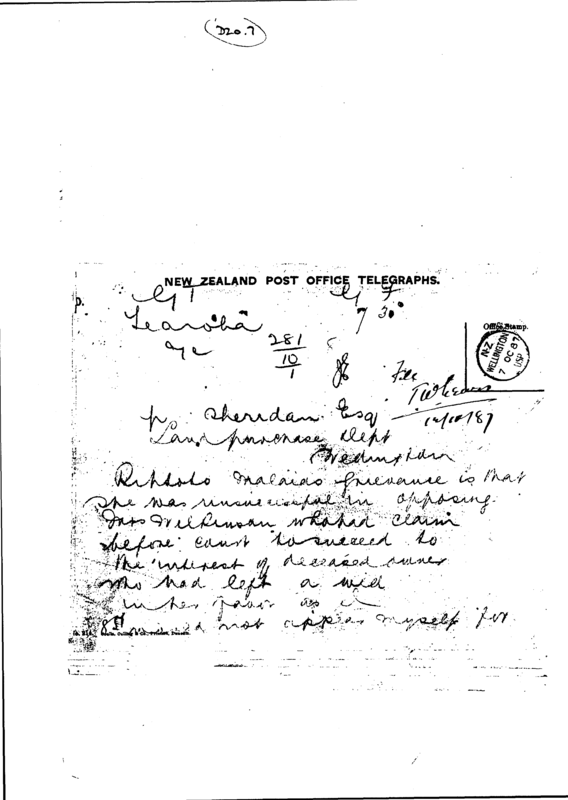 D20.7
NEW ZEALAND POST OFFICE TELEGRAPHS.
p.
7 30
Te aroha
281
10
1
Office Stamp.
N-Z
WELLINGTON
7 OC 87
File
14/10/87
p. Sheridan Esq
Land purchase Dept
Wellington
grievance is that
she was unsuccessful in opposing
Mrs Wilkinson who had claim
before court to succeed to
the interest of deceased owner
who had left a will
in her favor as
not appear myself for